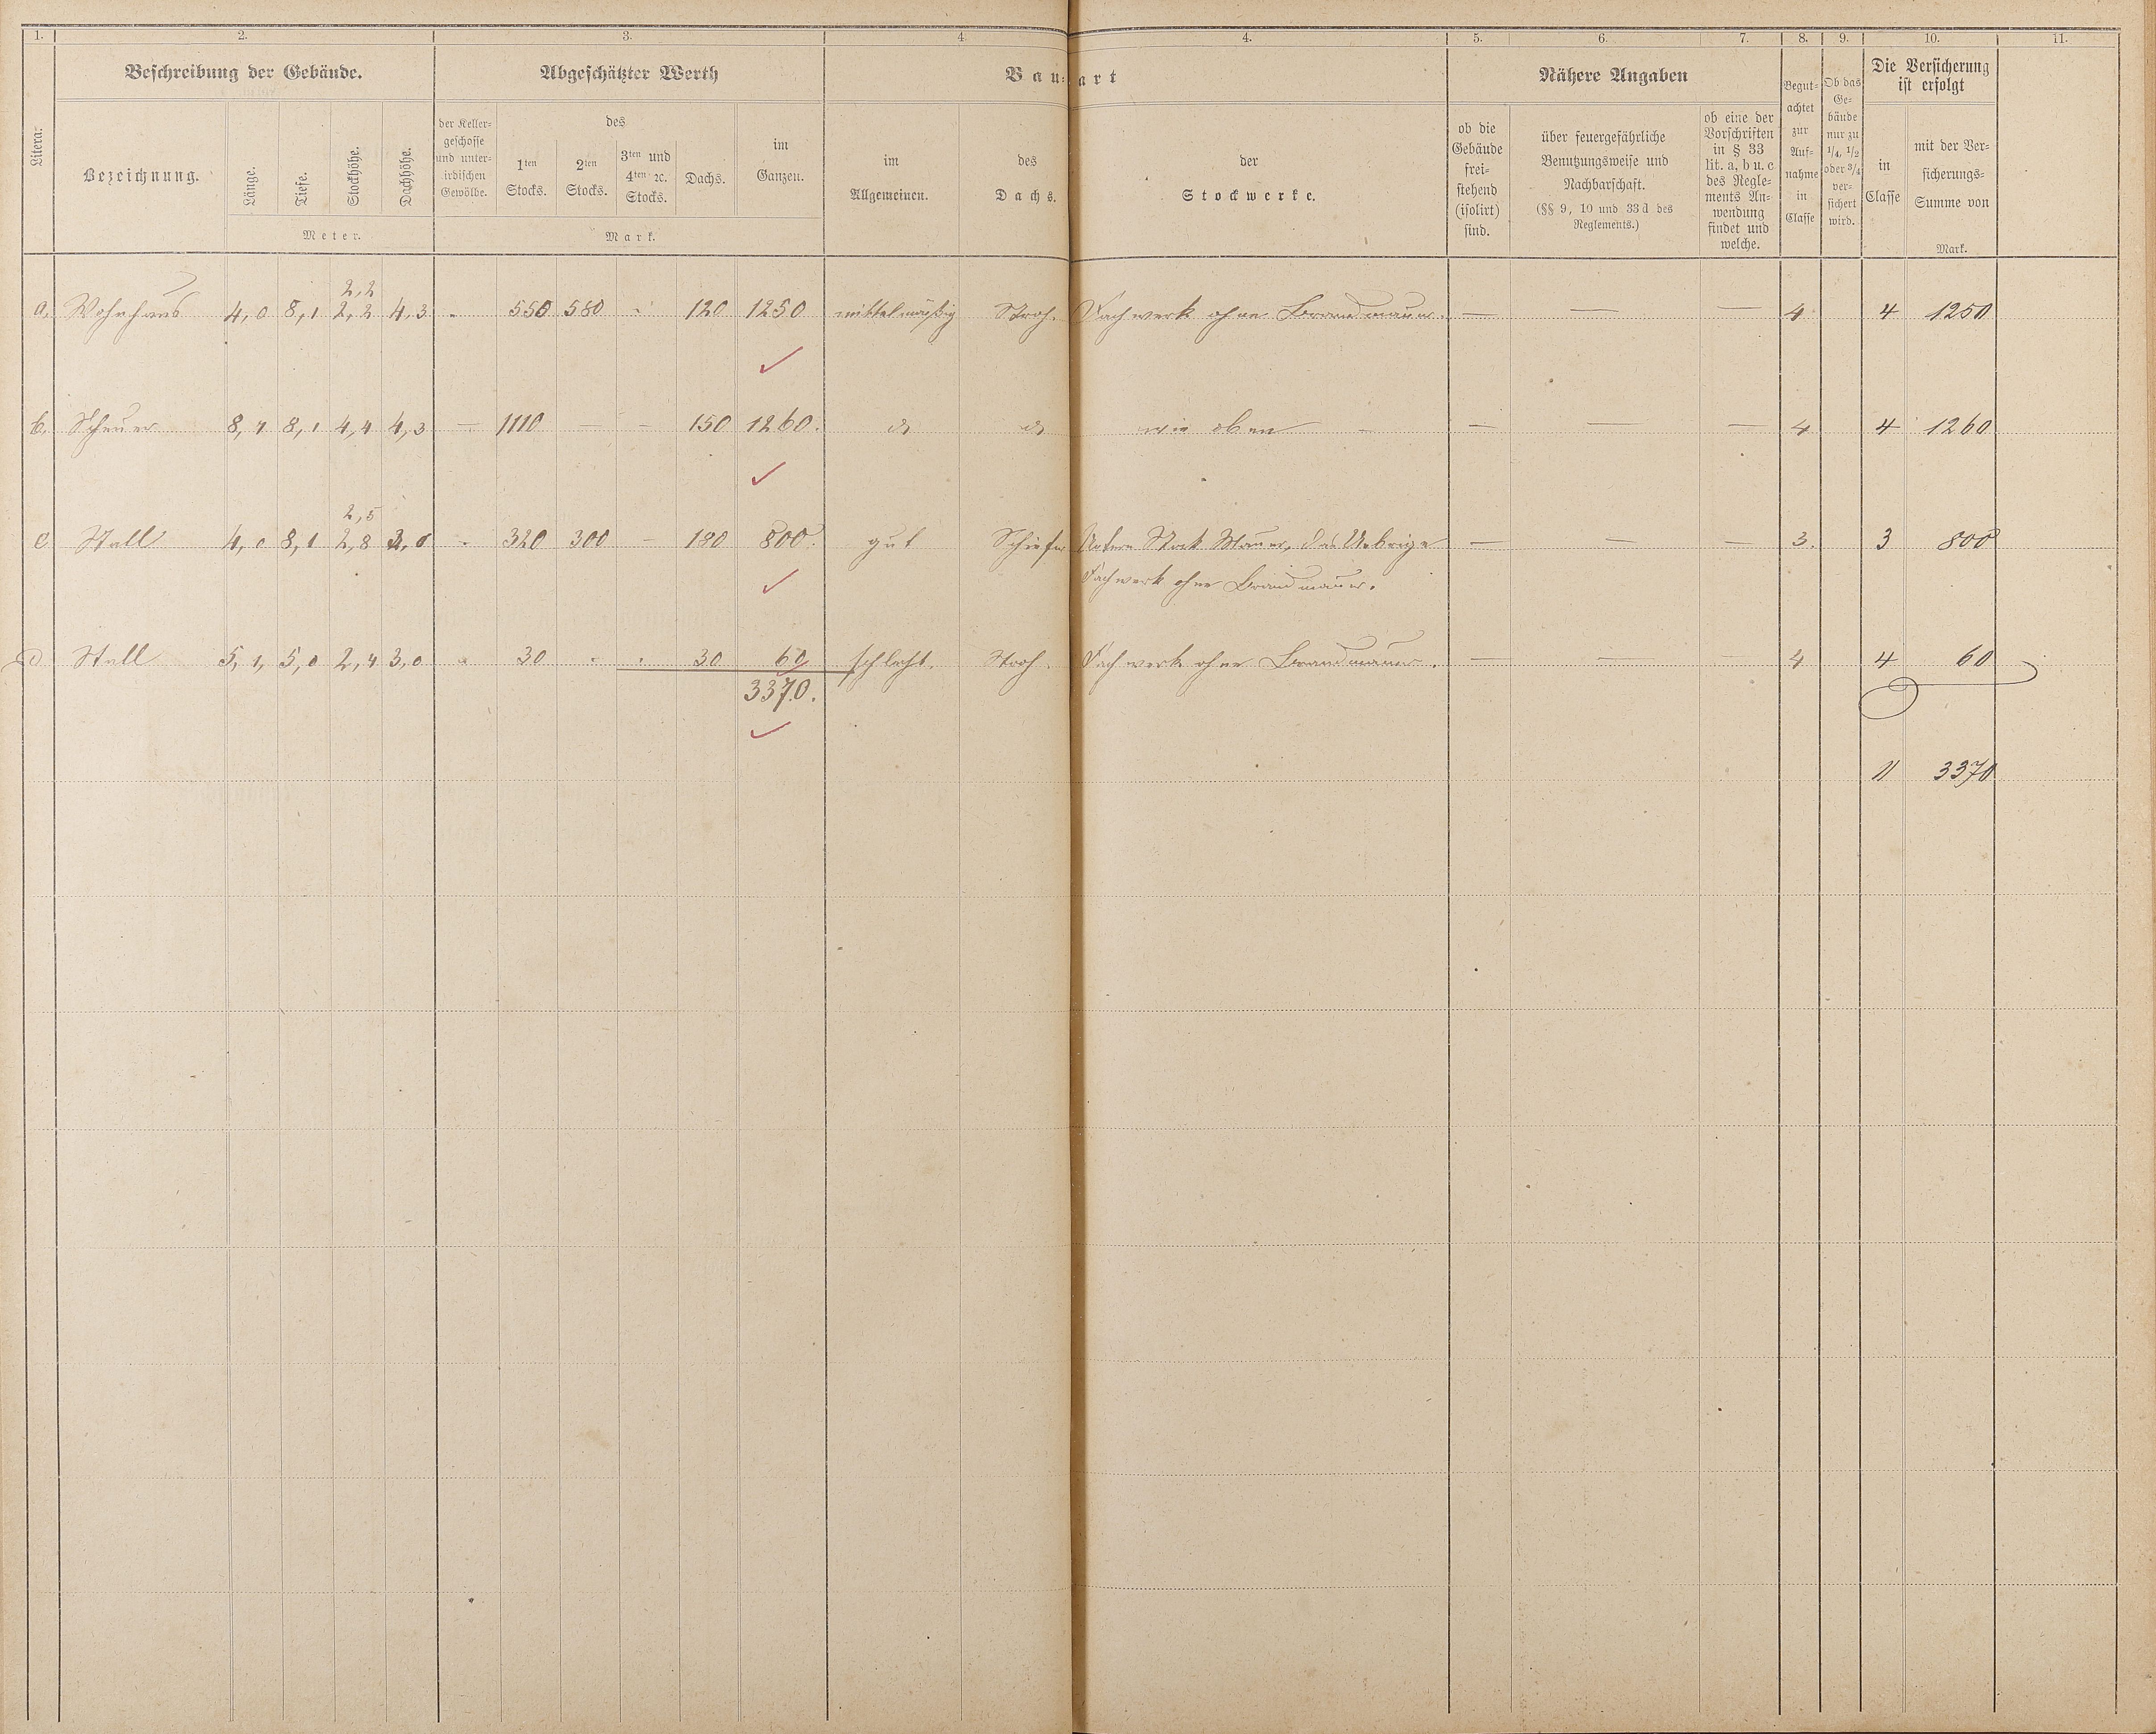 1. 2. 3. 4. 4. 5. 6. 7. 8. 9. 10. 11.
Litera.
Beschreibung der Gebäude.
Bezeichnung.
Länge.
Tiefe.
Stockhöhe.
Dachhöhe.
Meter.
Abgeschätzter Werth
der Keller-
geschosse
und unter-
irdischen
Gewölbe.
des
1ten
Stocks.
2ten
Stocks.
3ten und
4ten ꝛc.
Stocks.
Dachs.
im
Ganzen.
Mark.
Bau-art
im
Allgemeinen.
des
Dachs.
der
Stockwerke.
Nähere Angaben
ob die
Gebäude
frei-
stehend
(isolirt)
sind.
über feuergefährliche
Benutzungsweise und
Nachbarschaft.
(§§ 9, 10 und 33d des
Reglements.)
ob eine der
Vorschriften
in § 33
lit. a, b u. c
des Regle-
ments An-
wendung
findet und
welche.
Begut-
achtet
zur
Auf-
nahme
in
Classe
Ob das
Ge-
bäude
nur zu
1/4, 1/2
oder 3/4
ver-
sichert
wird.
Die Versicherung
ist erfolgt
in
Classe
mit der Ver-
sicherungs-
Summe von
Mark.
2,2
a, Wohnhaus 4,0 8,1 2,2 4,3 - 550 580 - 120 1250 mittelmäßig Stroh. Fachwerk ohne Brandmauer. — — — 4 4 1250
b. Scheuer 8,4 8,1 4,4 4,3 — 1110 — — 150 1260. do do wie oben — — — — 4 4 1260
2,5
c Stall 4,0 8,1 2,8 3,0 - 320 300 — 180 800. gut Schiefer Untern Stock Mauer, das Uebrige — — — 3. 3 800
Fachwerk ohne Brandmauer.
d Stall 5,1, 5,0 2,4 3,0 - 30 - - 30 60 schlecht. Stroh. Fachwerk ohne Brandmauer. — — — 4 4 60
3370.
11 3370